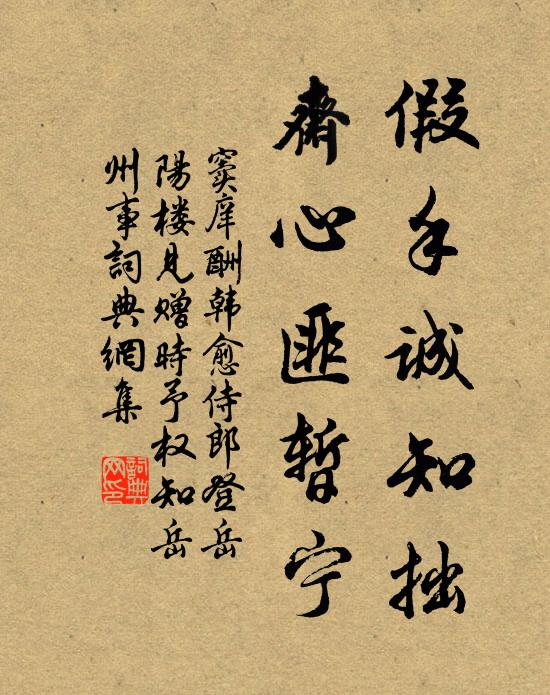 假手诚知拙
齋心匪暂宁
窦庠酬韩愈侍郎登岳
陽楼见赠時予权知岳
州事詞典網集
詞典网印